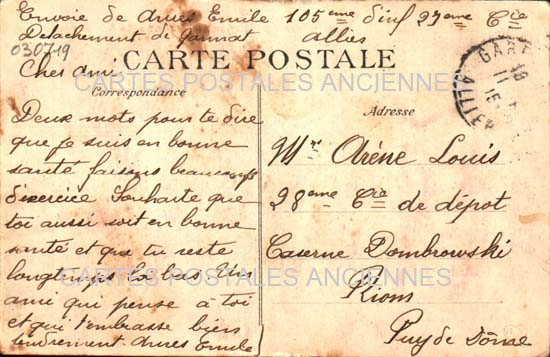 Envoie de Arues Emile 105eme d'inf 27eme Cie
Detachement de Gannat Allier
030719
CARTE POSTALE
Cher ami
CARTES POSTALES ANCIENNES
Correspondance
Adresse
GARE
ALLIER
Deux mots pour te dire
que je suis en bonne
santé faisons beaucoup
d'exercice Souhaite que
toi aussi soit en bonne
santé et que tu reste
longtemps la bas Un
ami qui pense à toi
et qui t'embrasse bien
tendrement Arues Emile
Mr Arène Louis
28eme Cie de dépot
Caserne Dombrowski
Riom
Puy de Dôme
CARTES POSTALES ANCIENNES